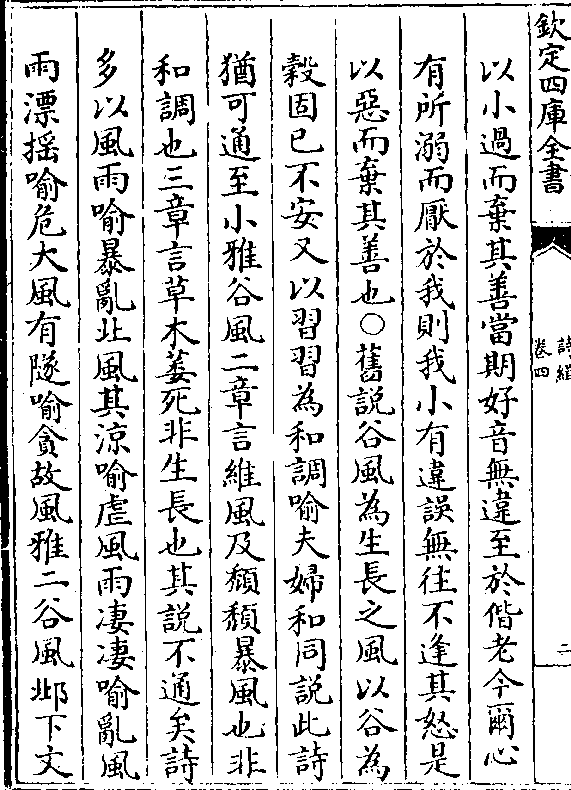 欽定四庫全書
詩緝
卷四
二
以小過而棄其善當期好音無違至於偕老今爾心
有所溺而厭於我則我小有違誤無往不逢其怒是
以惡而棄其善也○舊説谷風為生長之風以谷為
穀固已不安又以習習為和調喻夫婦和同説此詩
猶可通至小雅谷風二章言維風及頽頽暴風也非
和調也三章言草木萎死非生長也其説不通矣詩
多以風雨喻暴亂北風其涼喻虐風雨凄凄喻亂風
雨漂揺喻危大風有隧喻貪故風雅二谷風邶下文